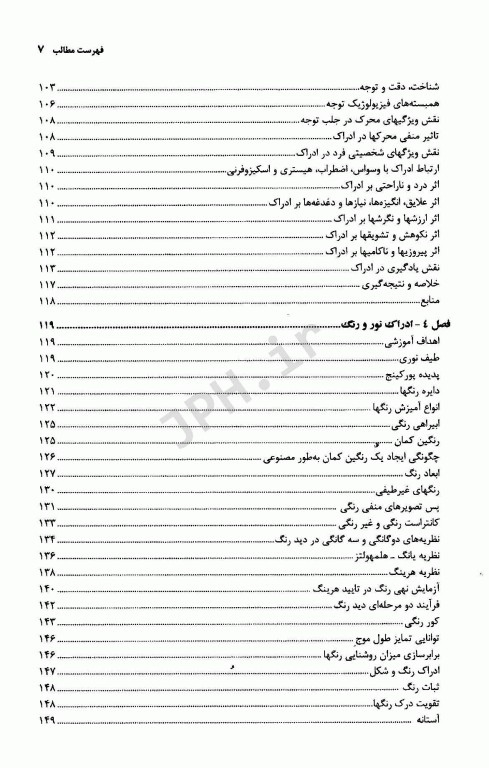 فهرست مطالب ۷
شناخت، دقت و توجه ۱۰۳
همبسته‌های فیزیولوژیک توجه ۱۰۶
نقش ویژگیهای محرک در جلب توجه ۱۰۸
تاثیر منفی محرکها در ادراک ۱۰۸
نقش ویژگهای شخصیتی فرد در ادراک ۱۰۹
ارتباط ادراک با وسواس، اضطراب، هیستری و اسکیزوفرنی ۱۱۰
اثر درد و ناراحتی بر ادراک ۱۱۰
اثر علایق، انگیزه‌ها، نیازها و دغدغه‌ها بر ادراک ۱۱۰
اثر ارزشها و نگرشها بر ادراک ۱۱۱
اثر نکوهش و تشویقها بر ادراک ۱۱۲
اثر پیروزیها و ناکامیها بر ادراک ۱۱۲
نقش یادگیری در ادراک ۱۱۳
خلاصه و نتیجه‌گیری ۱۱۷
منابع ۱۱۸
فصل ٤ - ادراک نور و رنگ ۱۱۹
اهداف آموزشی ۱۱۹
طیف نوری ۱۱۹
پدیده پورکینج ۱۲۰
دایره رنگها ۱۲۱
انواع آمیزش رنگها ۱۲۲
ابیراهی رنگی ۱۲۵
رنگین کمان ۱۲۵
چگونگی ایجاد یک رنگین کمان به‌طور مصنوعی ۱۲۶
ابعاد رنگ ۱۲۷
رنگهای غیرطیفی ۱۳۰
پس تصویرهای منفی رنگی ۱۳۱
کانتراست رنگی و غیر رنگی ۱۳۳
نظریه‌های دوگانگی و سه گانگی در دید رنگ ۱۳۴
نظریه یانگ - هلمهولتز ۱۳۶
نظریه هرینگ ۱۳۸
آزمایش نهی رنگ در تایید هرینگ ۱۴۰
فرآیند دو مرحله‌ای دید رنگ ۱۴۲
کور رنگی ۱۴۳
توانایی تمایز طول موج ۱۴۶
برابرسازی میزان روشنایی رنگها ۱۴۶
ادراک رنگ و شکل ۱۴۷
ثبات رنگ ۱۴۸
تقویت درک رنگها ۱۴۸
آستانه ۱۴۹
JPH.ir